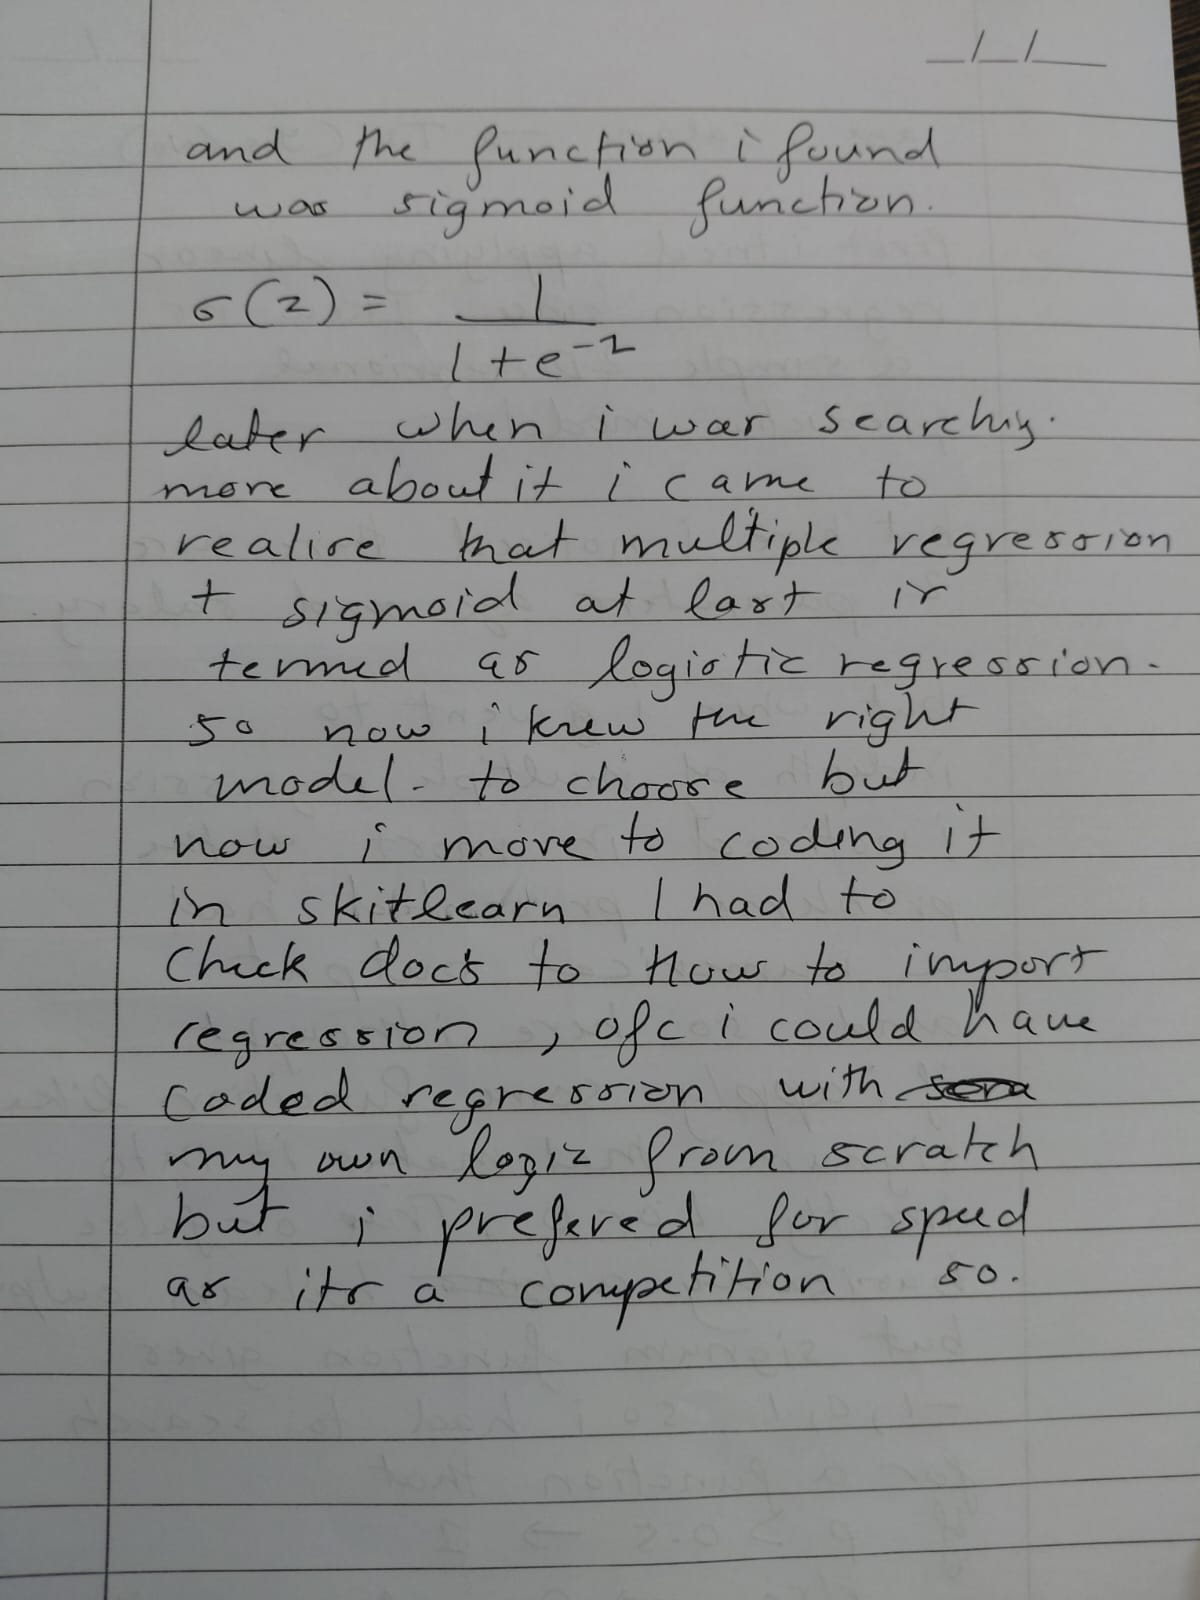 and the function i found
was sigmoid function.
σ(z) = 1
1+e^-z
later when i was searching.
more about it i came to
realise that multiple regression
+ sigmoid at last is
termed as logistic regression.
so now i knew the right
model. to choose but
now i move to coding it
in skitlearn I had to
check docs to how to import
regression, ofc i could have
coded regression with
my own logic from scratch
but i prefered for speed
as its a competition so.